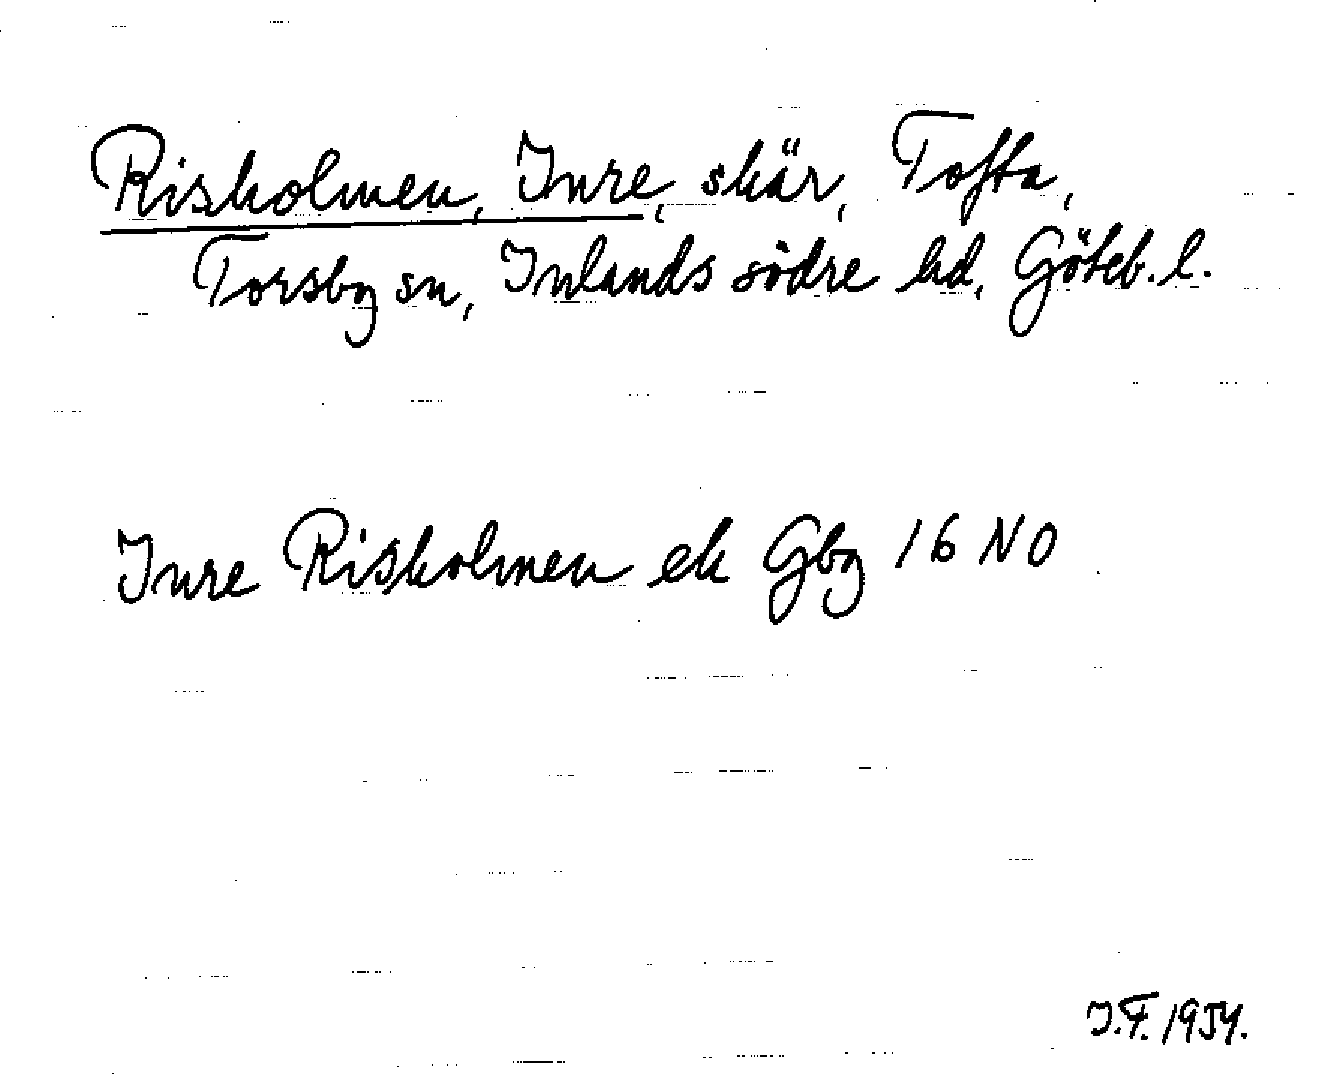 Risholmen, Inre, skär, Tofta,
Torsby sn, Inlands södre hd, Göteb. l.
Inre Risholmen ek Gbg 16 NO
I.F. 1954.